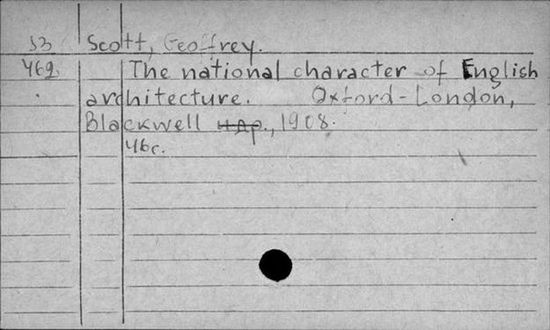 53 Scott, Geoffrey.
462 The national character of English
architecture. Oxford-London,
Blackwell др., 1908.
46c.